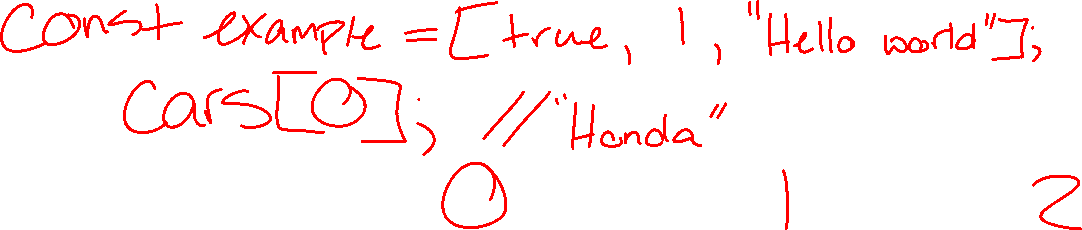 const example = [true, 1, "Hello world"];
cars[0]; //"Honda"
0 1 2